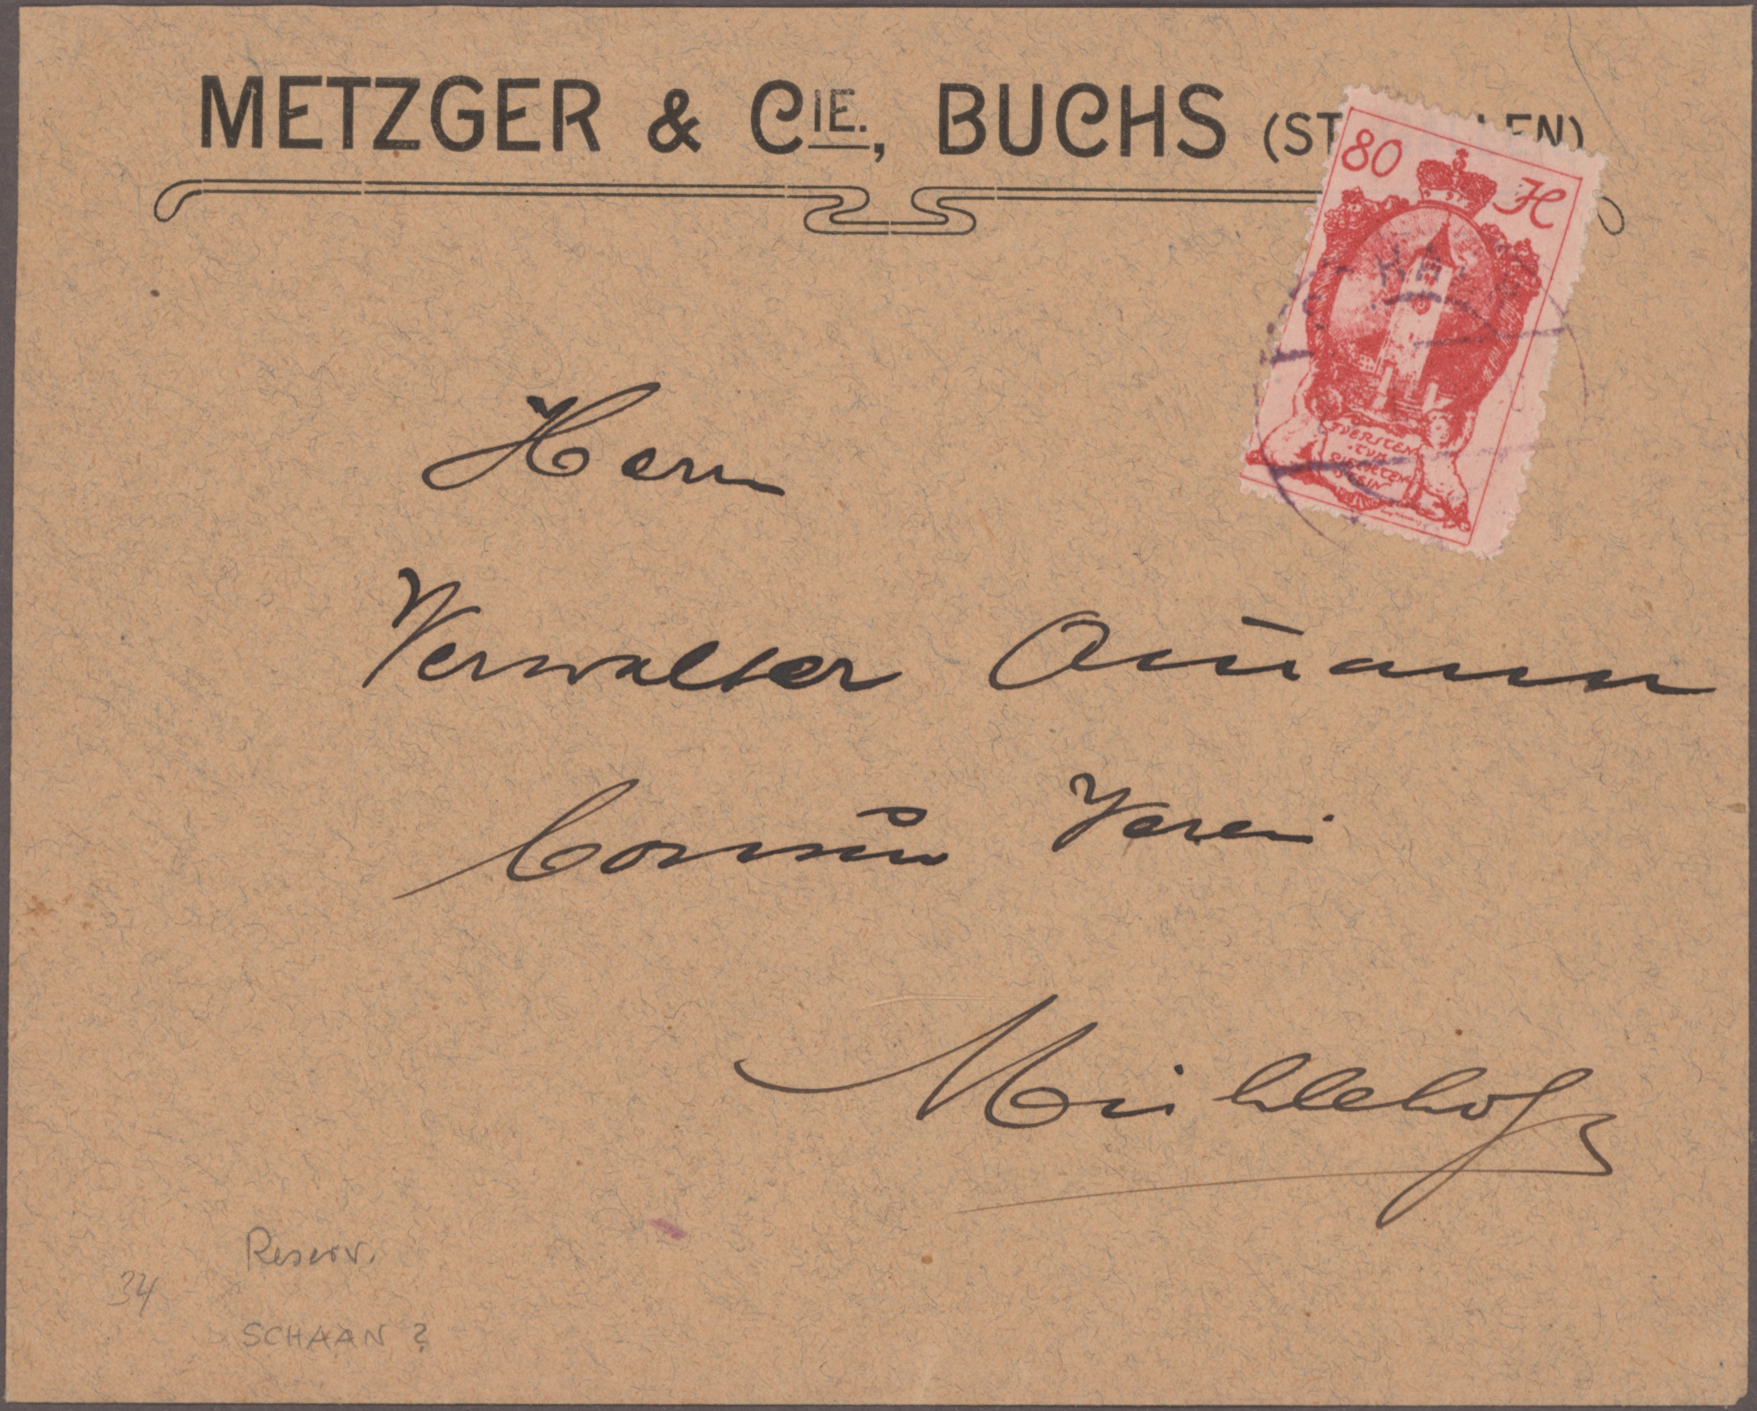 METZGER & CIE., BUCHS (ST LEN)
80 H
FUERSTEN
TUM
LIECHTEN
STEIN
Herrn
Verwalter
Consum Verein
Mühleholz
Reserv.
34
SCHAAN ?